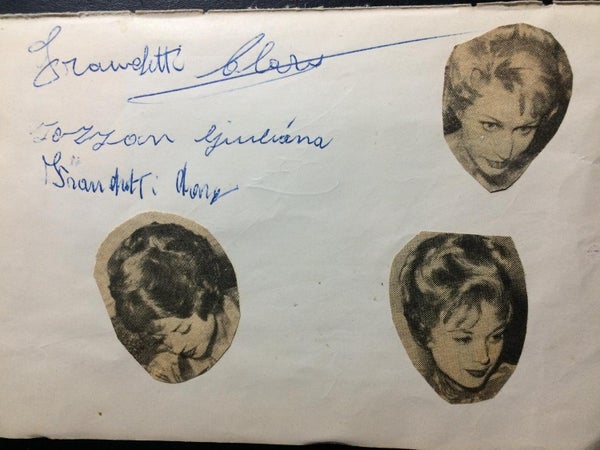 Frandetti Clara
Tozzan Giuliána
Frandetti